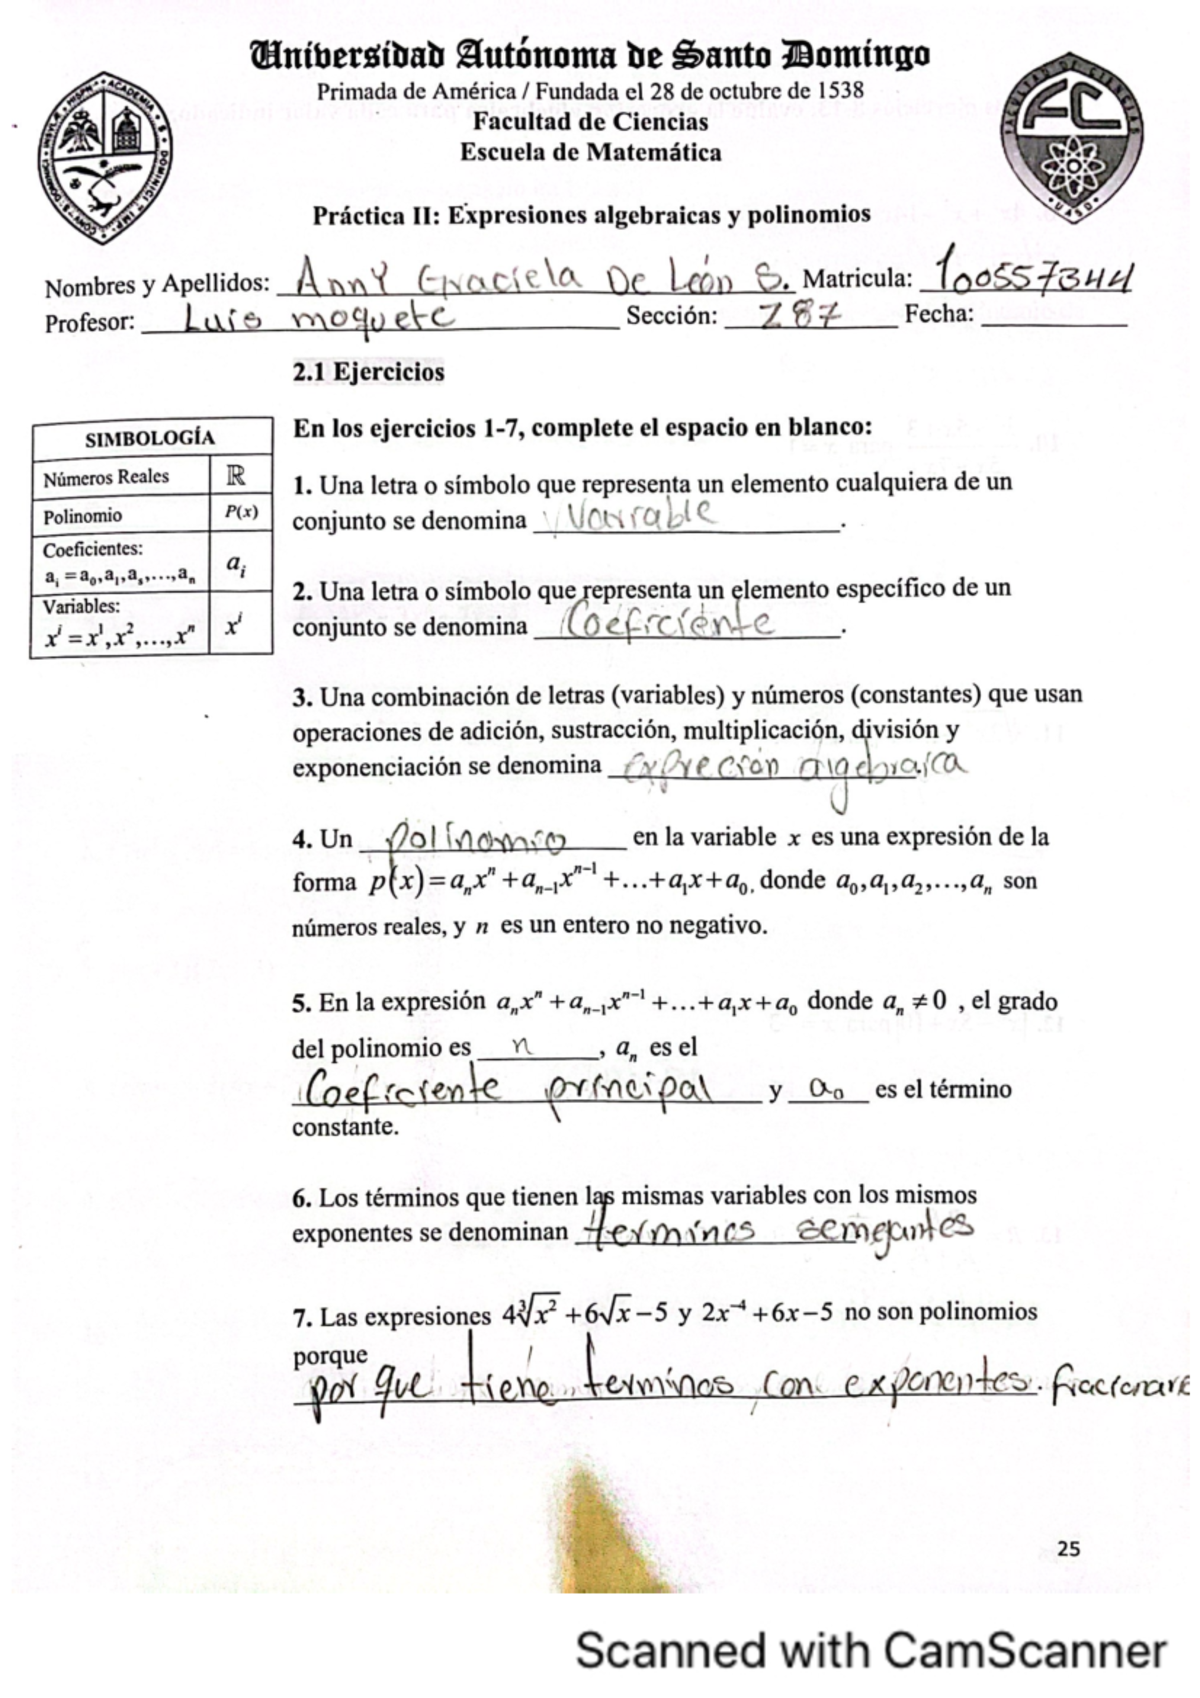 Universidad Autónoma de Santo Domingo
Primada de América / Fundada el 28 de octubre de 1538
Facultad de Ciencias
Escuela de Matemática
Práctica II: Expresiones algebraicas y polinomios
Nombres y Apellidos: Anny Graciela De León S. Matricula: 100557344
Profesor: Luis moquete Sección: Z87 Fecha:
2.1 Ejercicios
SIMBOLOGÍA
Números Reales ℝ
Polinomio P(x)
Coeficientes:
a_i = a_0, a_1, a_s, ..., a_n a_i
Variables:
x^i = x^1, x^2, ..., x^n x^i
En los ejercicios 1-7, complete el espacio en blanco:
1. Una letra o símbolo que representa un elemento cualquiera de un
conjunto se denomina Variable.
2. Una letra o símbolo que representa un elemento específico de un
conjunto se denomina Coeficiente.
3. Una combinación de letras (variables) y números (constantes) que usan
operaciones de adición, sustracción, multiplicación, división y
exponenciación se denomina expreción algebraica
4. Un polinomio en la variable x es una expresión de la
forma p(x) = a_n x^n + a_{n-1} x^{n-1} + ... + a_1 x + a_0, donde a_0, a_1, a_2, ..., a_n son
números reales, y n es un entero no negativo.
5. En la expresión a_n x^n + a_{n-1} x^{n-1} + ... + a_1 x + a_0 donde a_n ≠ 0 , el grado
del polinomio es n, a_n es el
Coeficiente principal y a_0 es el término
constante.
6. Los términos que tienen las mismas variables con los mismos
exponentes se denominan terminos semejantes
7. Las expresiones 4∛x² + 6√x − 5 y 2x⁻⁴ + 6x − 5 no son polinomios
porque
por que tiene terminos con exponentes. fracionare
25
Scanned with CamScanner